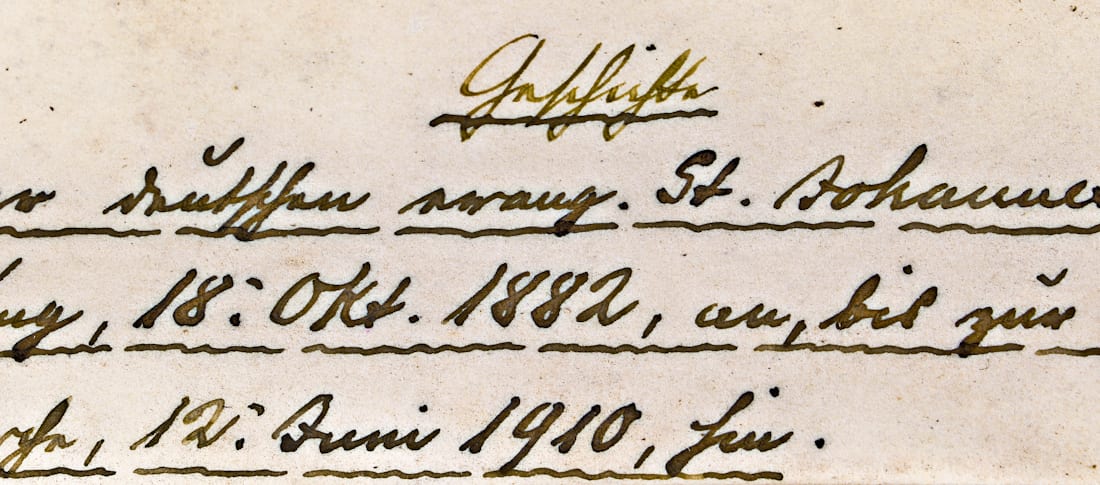 Geschichte
er deutschen evang. St. Johannes
ung, 18: Okt. 1882, an, bis zur
che, 12: Juni 1910, hin.